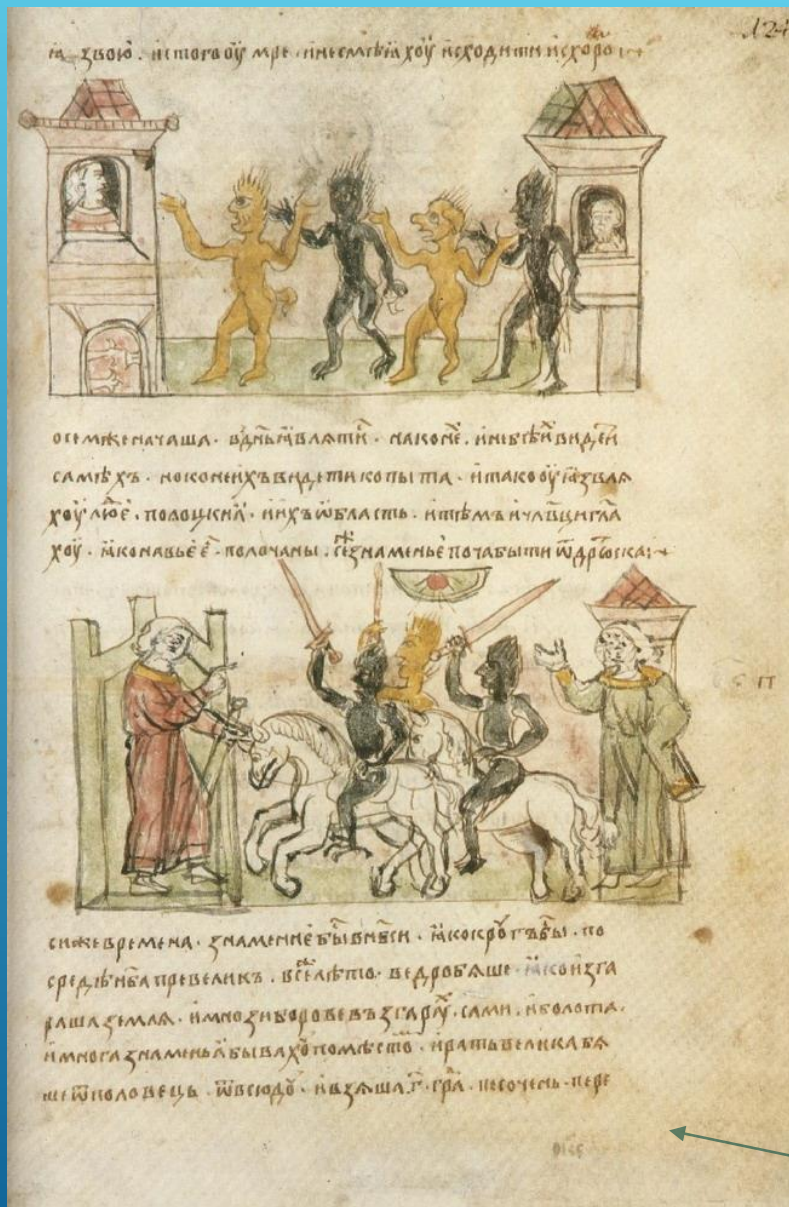 ꙗзвою. и с того оумре. и не смѣꙗхоу исходити ис хоро
ѡсем же начаша. в дн҃ь ꙗвлѧти. на коне. и не бѣ и видѣти
самѣхъ. но коне ихъ видети копыта. и тако оуꙗзвлѧ
хоу люᲁе. полоцкиꙗ. и ихъ ѡбласть. и тѣмъ и чл҃вци гла
хоу. ꙗко навье бьють полочаны. се же знаменье поча быти ѿ дрьютьска:
си же времена. знамение бы в нб҃си. ꙗко кругъ бы. по
средѣ нб҃а превеликъ. в се же лѣто. ведро бѧше ꙗко изга
раше землѧ. и мнози борове възгарахоу. сами. и болота.
и многа знаменьꙗ бываху по мѣсто. и рать велика бѧ
ше ѿ половець. ѿвсюду. и взѧша г. гра. песочень. пере